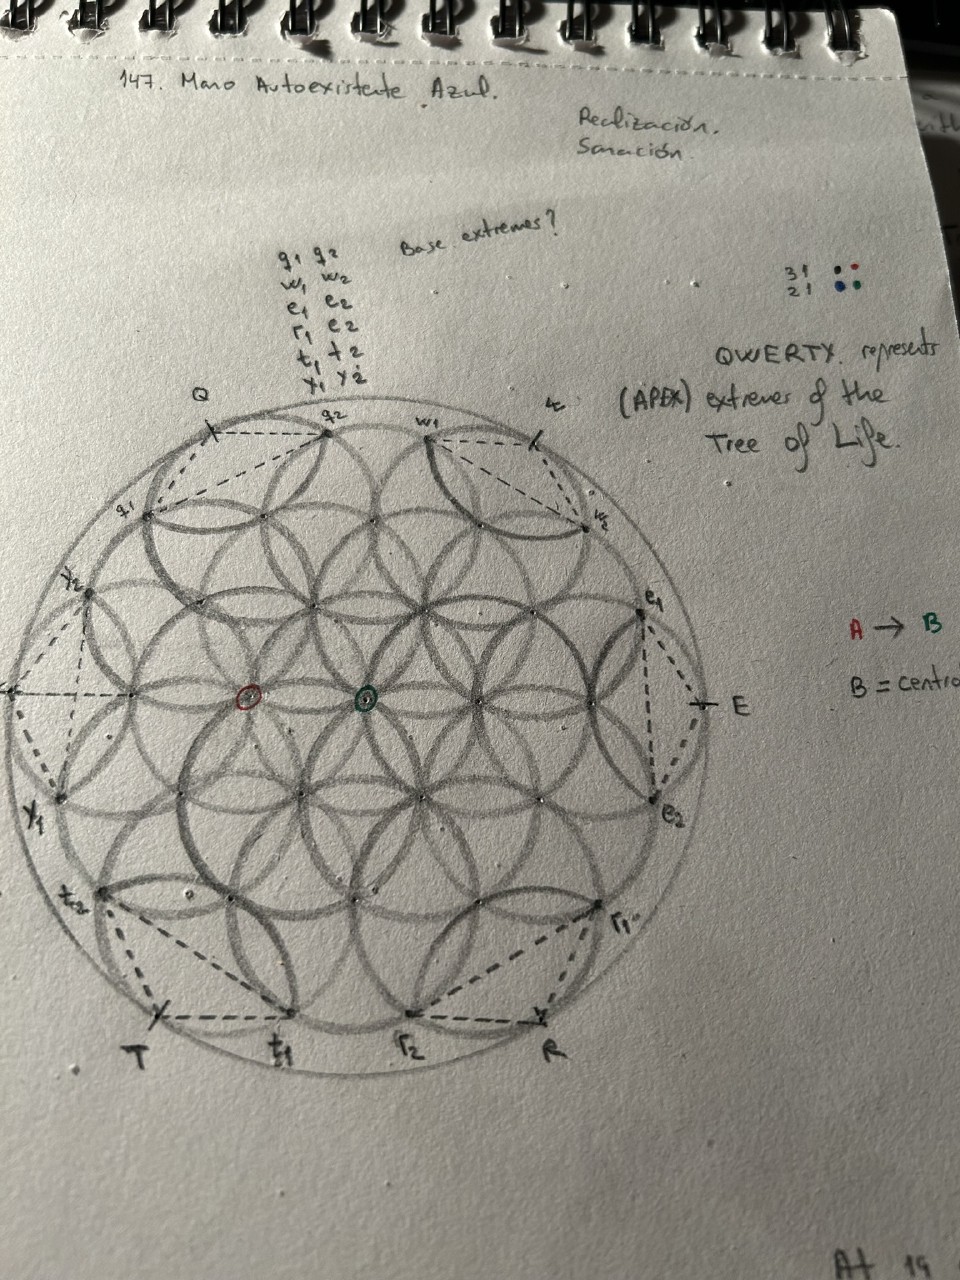 147. Mano Autoexistente Azul.
Realización.
Sanación.
Base extremes?
q1 q2
w1 w2
e1 e2
r1 e2
t1 t2
y1 y2
31
21
QWERTY. represents
(APEX) extremes of the
Tree of Life.
Q
q2
w1
q1
w2
y2
e1
A → B
B = centro
E
y1
e2
t2
r1
T
t1
r2
R
At 19